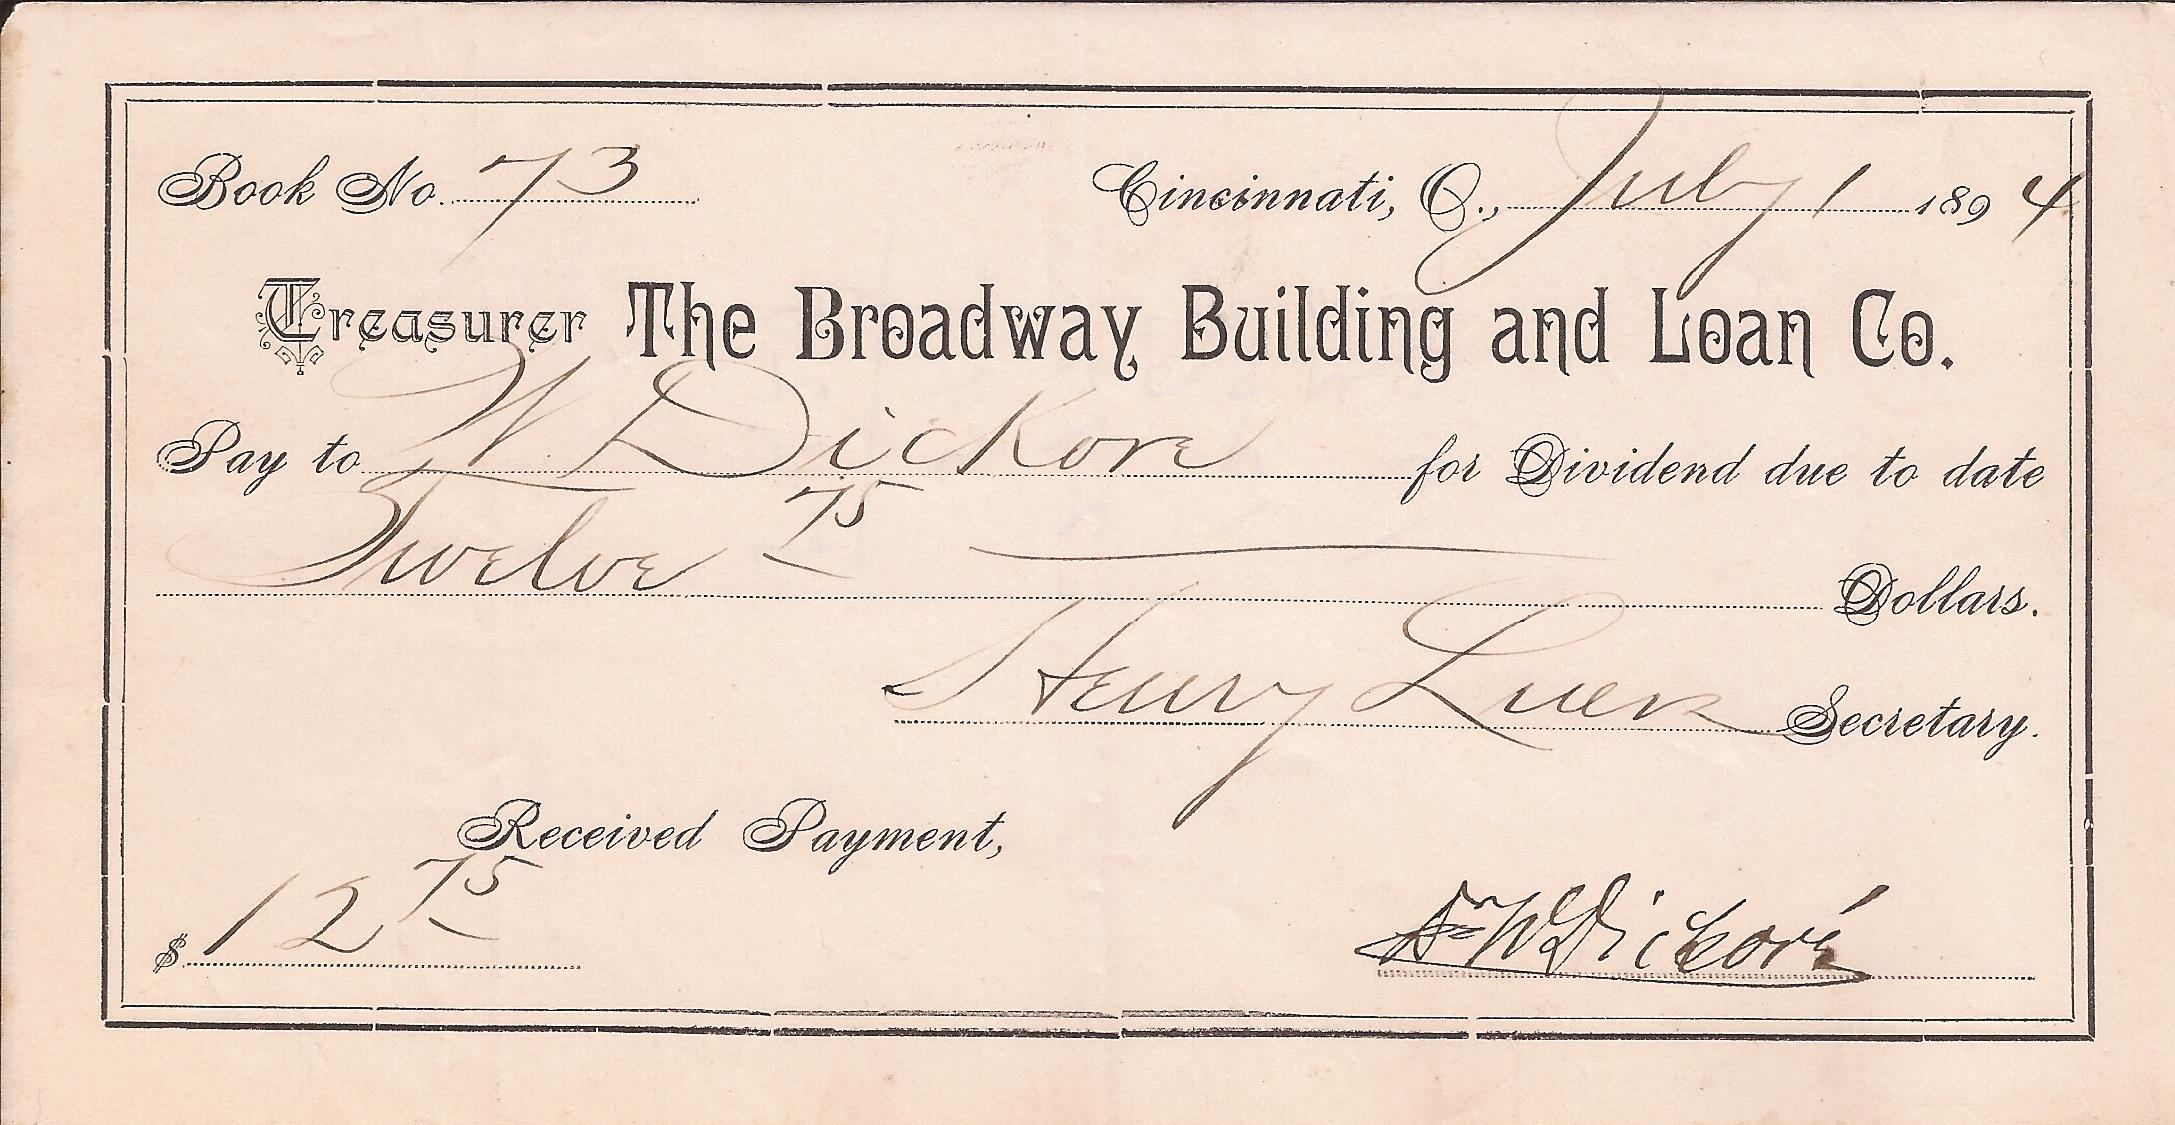 Book No. 73 Cincinnati, O., July 1 1894
Treasurer The Broadway Building and Loan Co.
Pay to W Dickore for Dividend due to date
Twelve 75 Dollars.
Henry Luers Secretary.
Received Payment,
$ 12 75
Dr W Dickoré